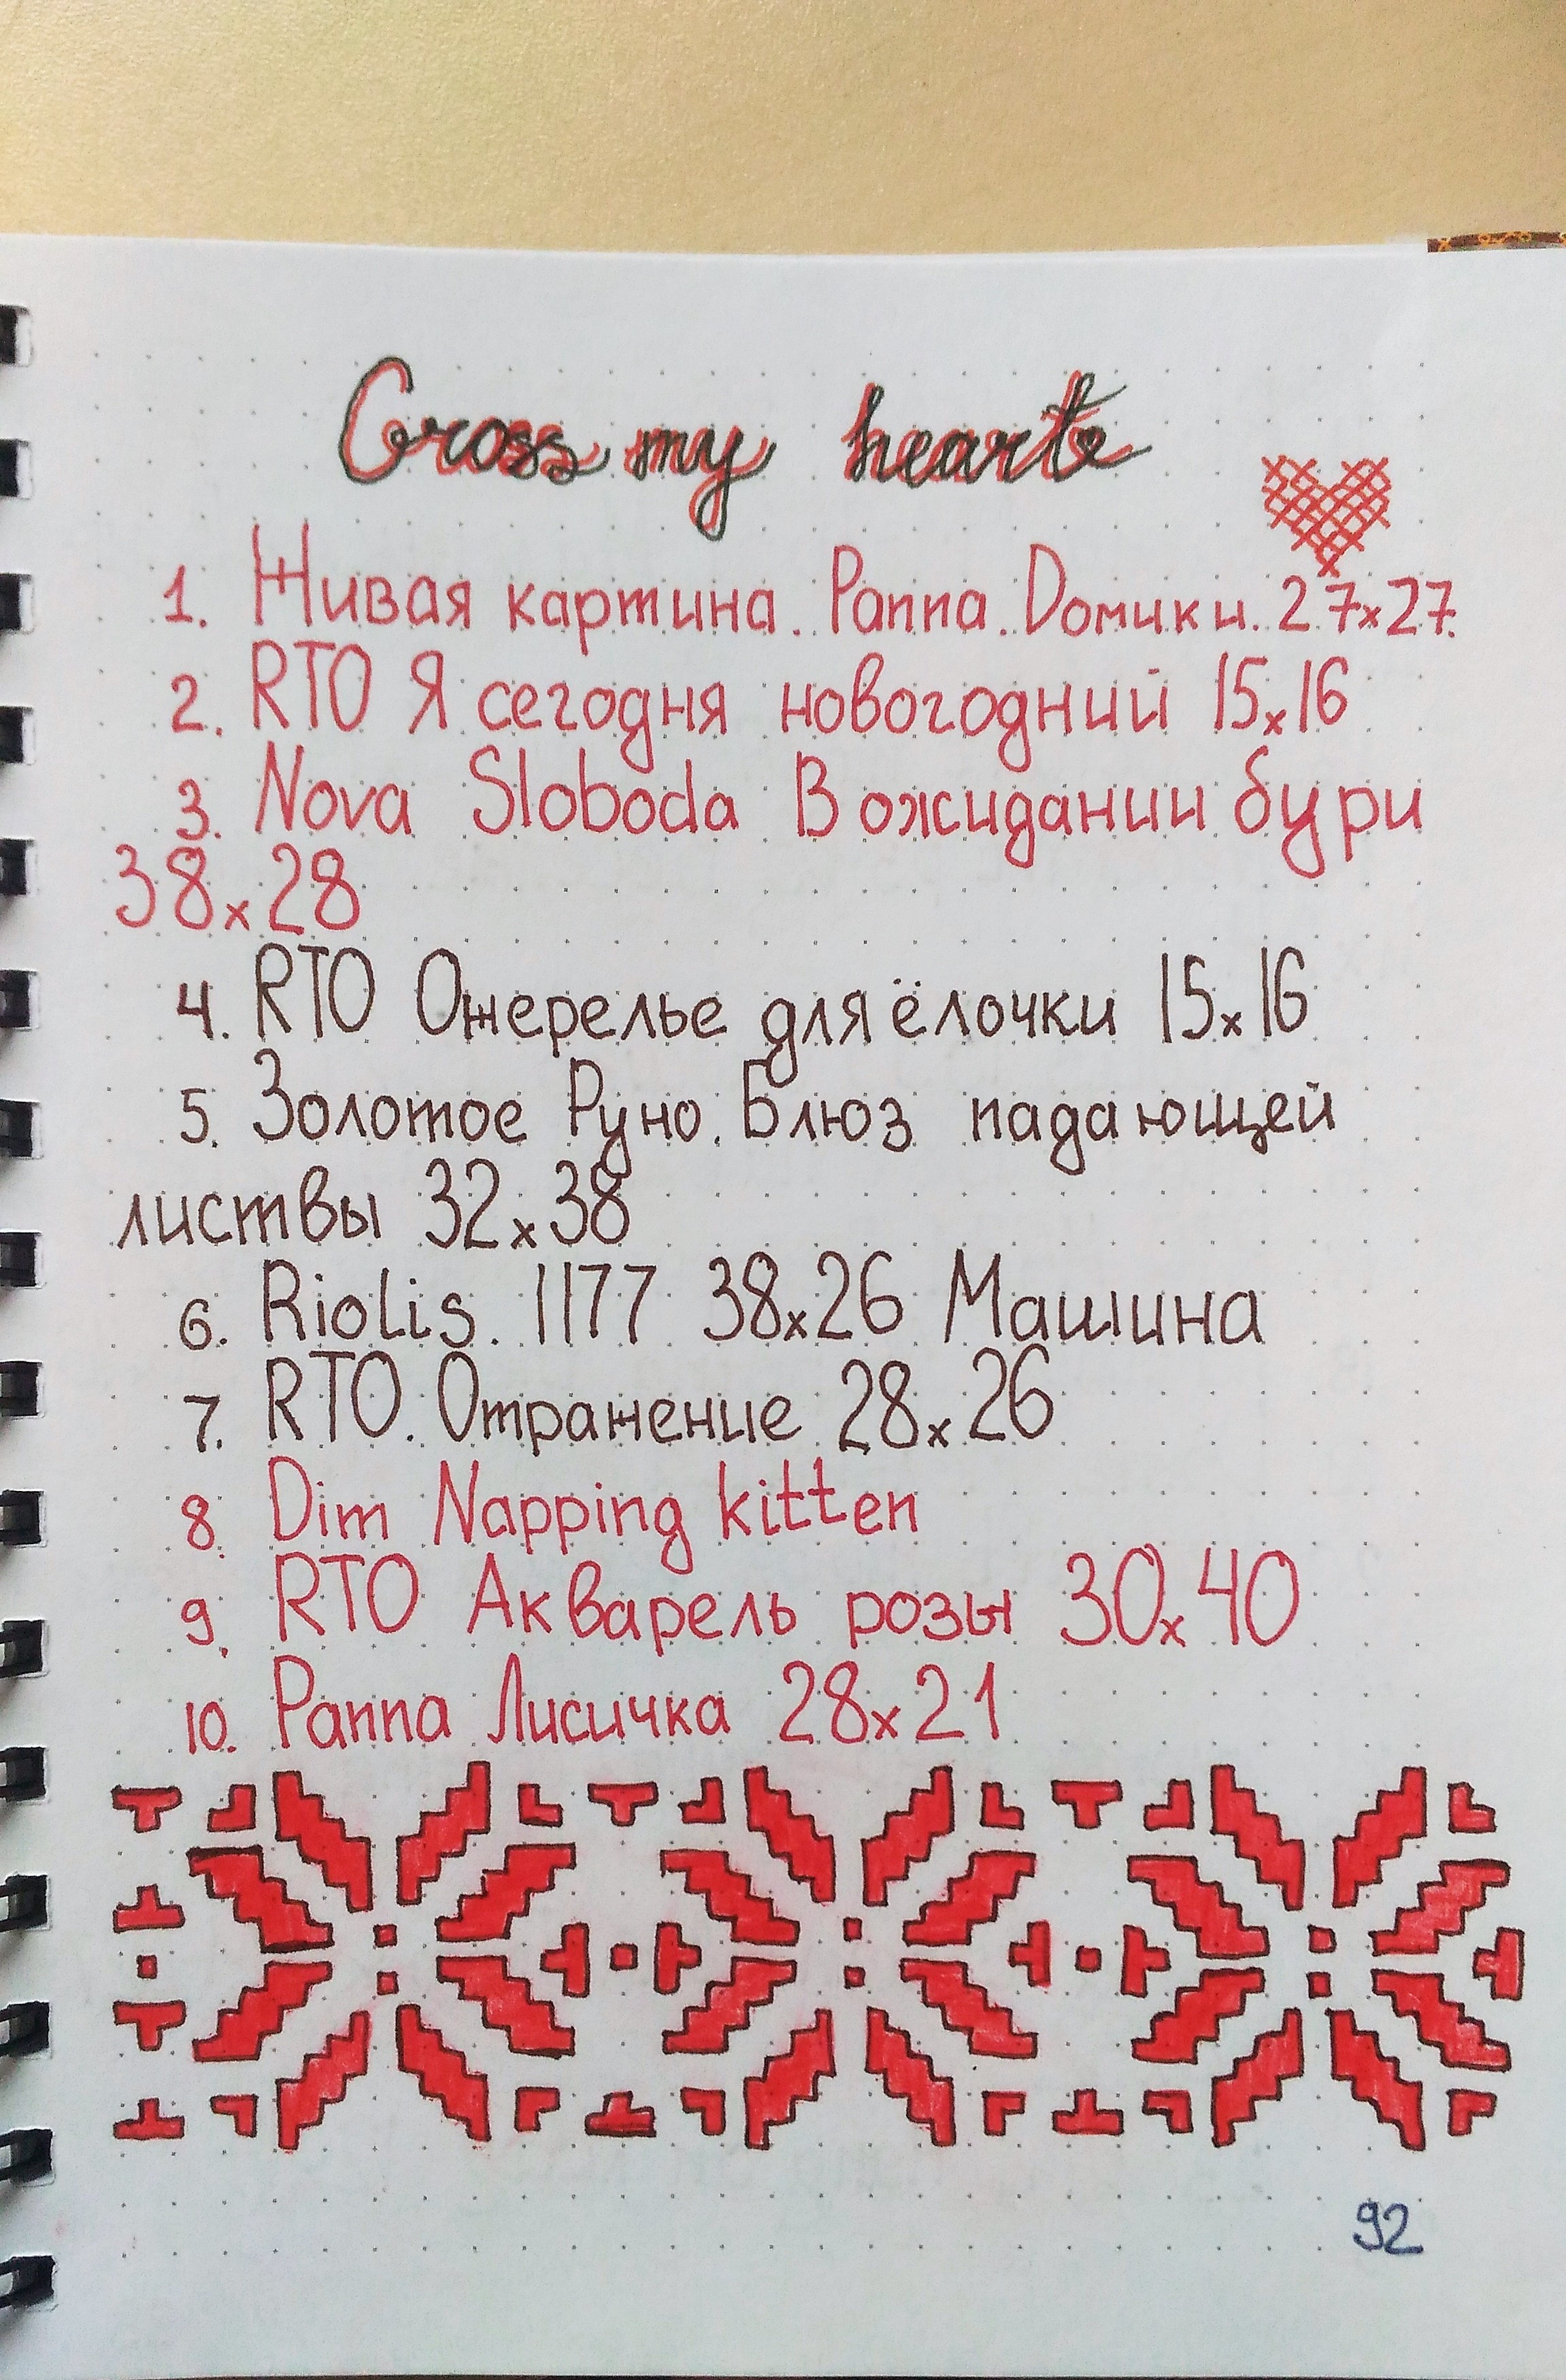 Cross my heart
1. Живая картина. Panna. Домики. 27x27.
2. RTO Я сегодня новогодний 15x16
3. Nova Sloboda В ожидании бури
38x28
4. RTO Ожерелье для ёлочки 15x16
5. Золотое Руно. Блюз падающей
листвы 32x38
6. Riolis. 1177 38x26 Машина
7. RTO. Отражение 28x26
8. Dim Napping kitten
9. RTO Акварель розы 30x40
10. Panna Лисичка 28x21
92